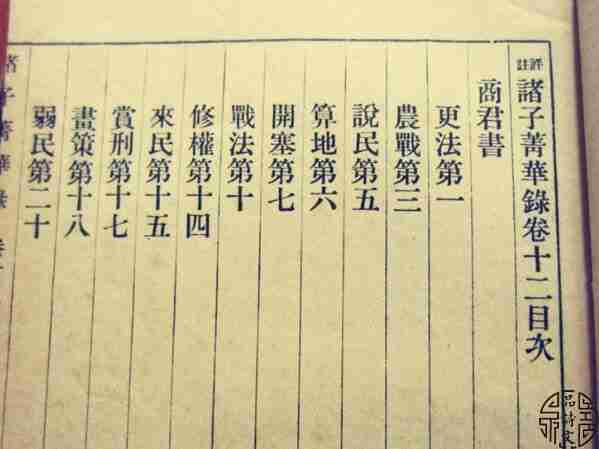 評註諸子菁華錄卷十二目次
商君書
更法第一
農戰第三
說民第五
算地第六
開塞第七
戰法第十
修權第十四
來民第十五
賞刑第十七
畫策第十八
弱民第二十
諸子菁華錄 卷十